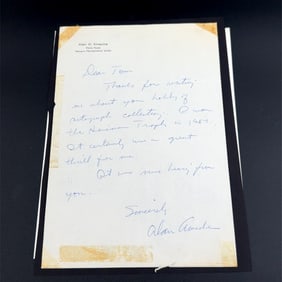 Alan D. Ameche
Dear Tom
Thanks for writing
us about your hobby of
autograph collecting. I won
the Heisman Trophy in 1954.
It certainly was a great
thrill for me.
It was nice hearing from
you.
Sincerely
Alan Ameche